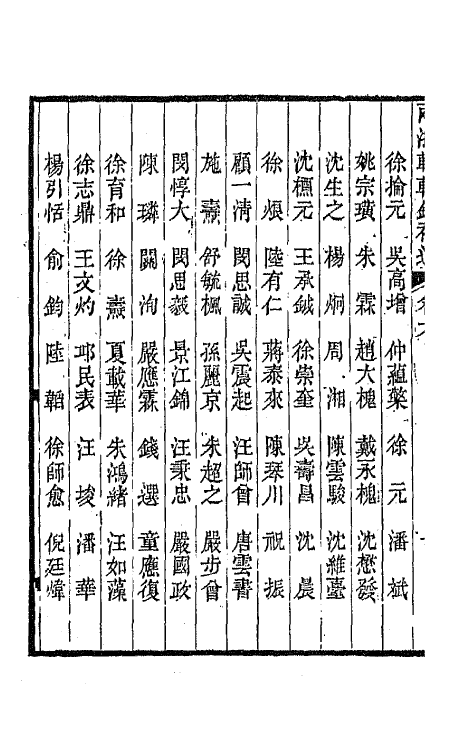 徐掄元　吳高增　仲蘊檠　徐　元　潘　斌
姚宗璜　朱　霖　趙大槐　戴永槐　沈懋發
沈生之　楊　炯　周　湘　陳雲駿　沈維臺
沈標元　王承鉞　徐崇奎　吳壽昌　沈　晨
徐　熉　陸有仁　蔣泰來　陳琴川　祝　振
顧一淸　閔思誠　吳震起　汪師曾　唐雲書
施　燾　舒毓楓　孫麗京　朱超之　嚴步曾
閔惇大　閔思毅　景江錦　汪秉忠　嚴國政
陳　璘　關　洵　嚴應霖　錢　選　童應復
徐育和　徐　燾　夏載華　朱鴻緒　汪如藻
徐志鼎　王文灼　邛民表　汪　埈　潘　華
楊引恬　俞　鈞　陸　韜　徐師愈　倪廷煒